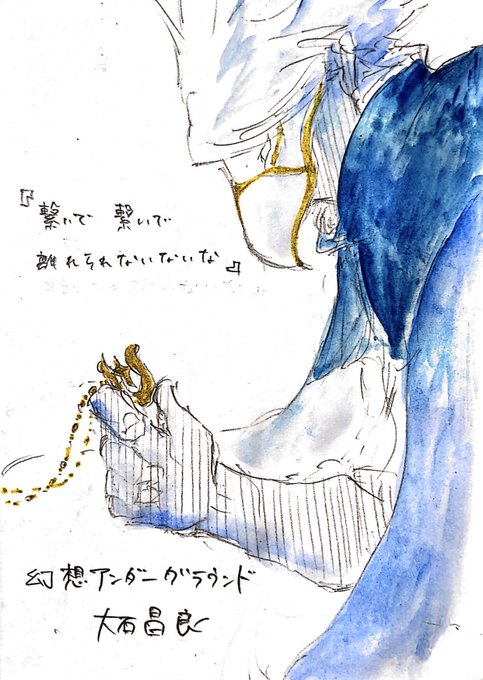 『繋いで 繋いで
離れそれないないな』
幻想アンダーグラウンド
大石昌良